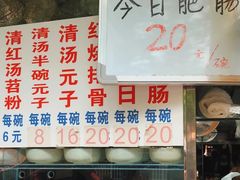 今日肥肠
20元/碗
清红汤苔粉
每碗
6元
清汤半碗元子
每碗
8
清汤元子
每碗
16
红烧排骨
每碗
20
日
每碗
20
肠
每碗
20